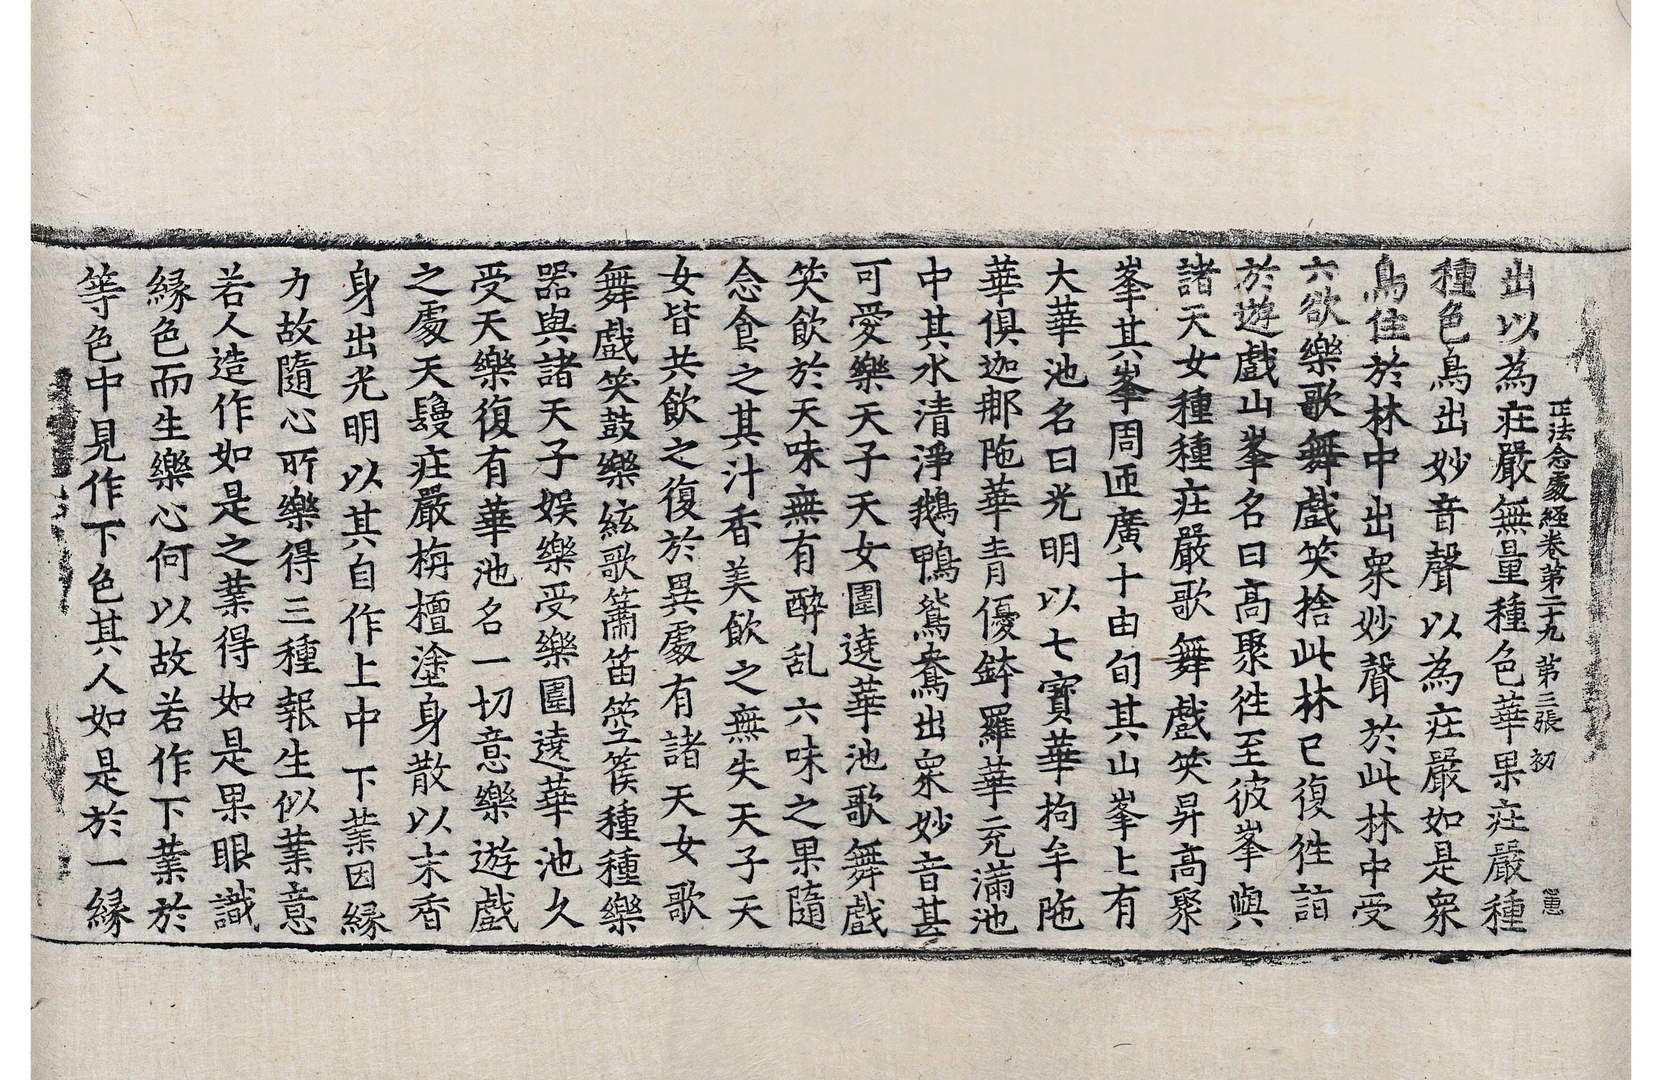 正法念處經卷第二十九 第三張 初
出以為庄嚴無量種色華果庄嚴種
種色鳥出妙音聲以為庄嚴如是衆
鳥住於林中出衆妙聲於此林中受
六欲樂歌舞戲笑捨此林已復徃詣
於遊戲山峯名曰高聚徃至彼峯與
諸天女種種庄嚴歌舞戲笑昇高聚
峯其峯周匝廣十由旬其山峯上有
大華池名曰光明以七寶華拘牟陁
華俱迦那陁華青優鉢羅華充滿池
中其水清淨鵝鴨鴛鴦出衆妙音甚
可愛樂天子天女圍遶華池歌舞戲
笑飲於天味無有醉乱六味之果隨
念食之其汁香美飲之無失天子天
女皆共飲之復於異處有諸天女歌
舞戲笑鼓樂絃歌簫笛箜篌種種樂
器與諸天子娛樂受樂圍遶華池久
受天樂復有華池名一切意樂遊戲
之處天鬘庄嚴栴檀塗身散以末香
身出光明以其自作上中下業因緣
力故隨心所樂得三種報生似業意
若人造作如是之業得如是果眼識
緣色而生樂心何以故若作下業於
等色中見作下色其人如是於一緣